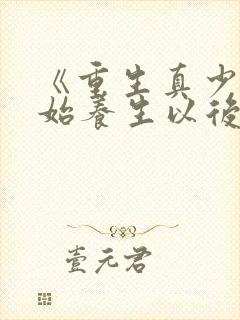 《重生真少
始养生以後
壹元君